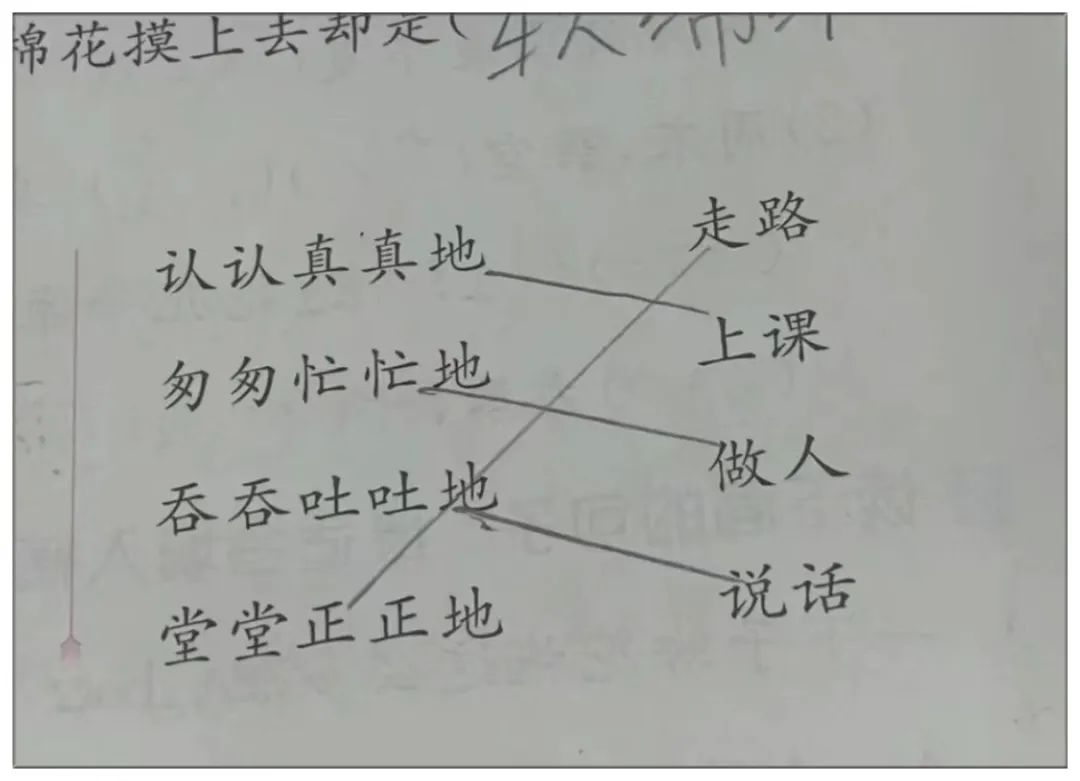 棉花摸上去却是(软绵绵
认认真真地 走路
匆匆忙忙地 上课
吞吞吐吐地 做人
堂堂正正地 说话